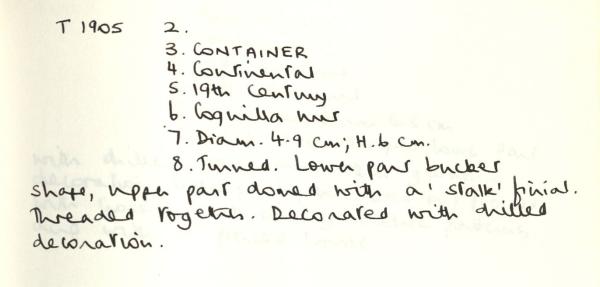 T 1905 2.
3. CONTAINER
4. Continental
5. 19th Century
6. Coquilla nut
7. Diam. 4.9 cm; H. 6 cm.
8. Turned. Lower part bucket
shape, upper part domed with a 'stalk' finial.
Threaded together. Decorated with drilled
decoration.